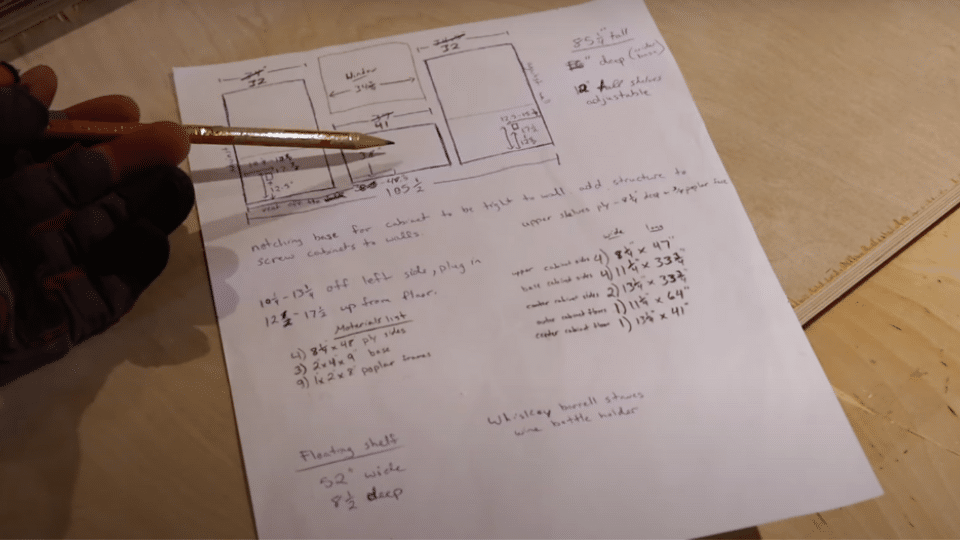 32
32
Window
34
41
12.5"
17½
105½
85¼" tall
" deep
12" shelves
adjustable
notching base for cabinet to be tight to wall. add structure to
screw cabinets to walls.
upper shelves ply - 8¼" deep
10¼ - 13¼ off left side, plug in
12½ - 17½ up from floor.
wide long
upper cabinet sides 4) 8¼" x 47"
base cabinet sides 4) 11¼" x 33¾"
center cabinet sides 2) 13¼" x 33¾"
outer cabinet floors 1) 11¼" x 64"
center cabinet floor 1) 13¼" x 41"
Materials list
4) 8¼" x 48" ply sides
3) 2x4x9 base
9) 1x2x8 poplar frames
Whiskey barrell staves
wine bottle holder
Floating shelf
52" wide
8½ deep